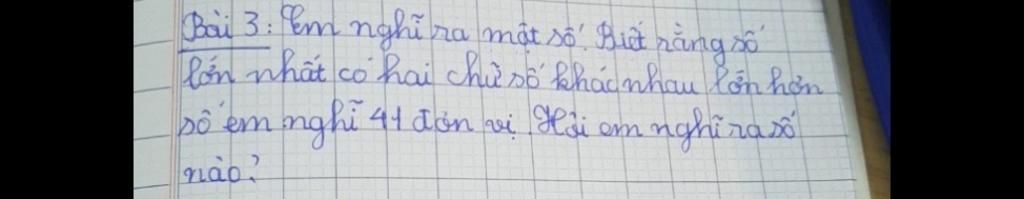 Bài 3: Em nghĩ ra một số. Biết rằng số
lớn nhất có hai chữ số khác nhau lớn hơn
số em nghĩ 41 đơn vị. Hỏi em nghĩ ra số
nào?